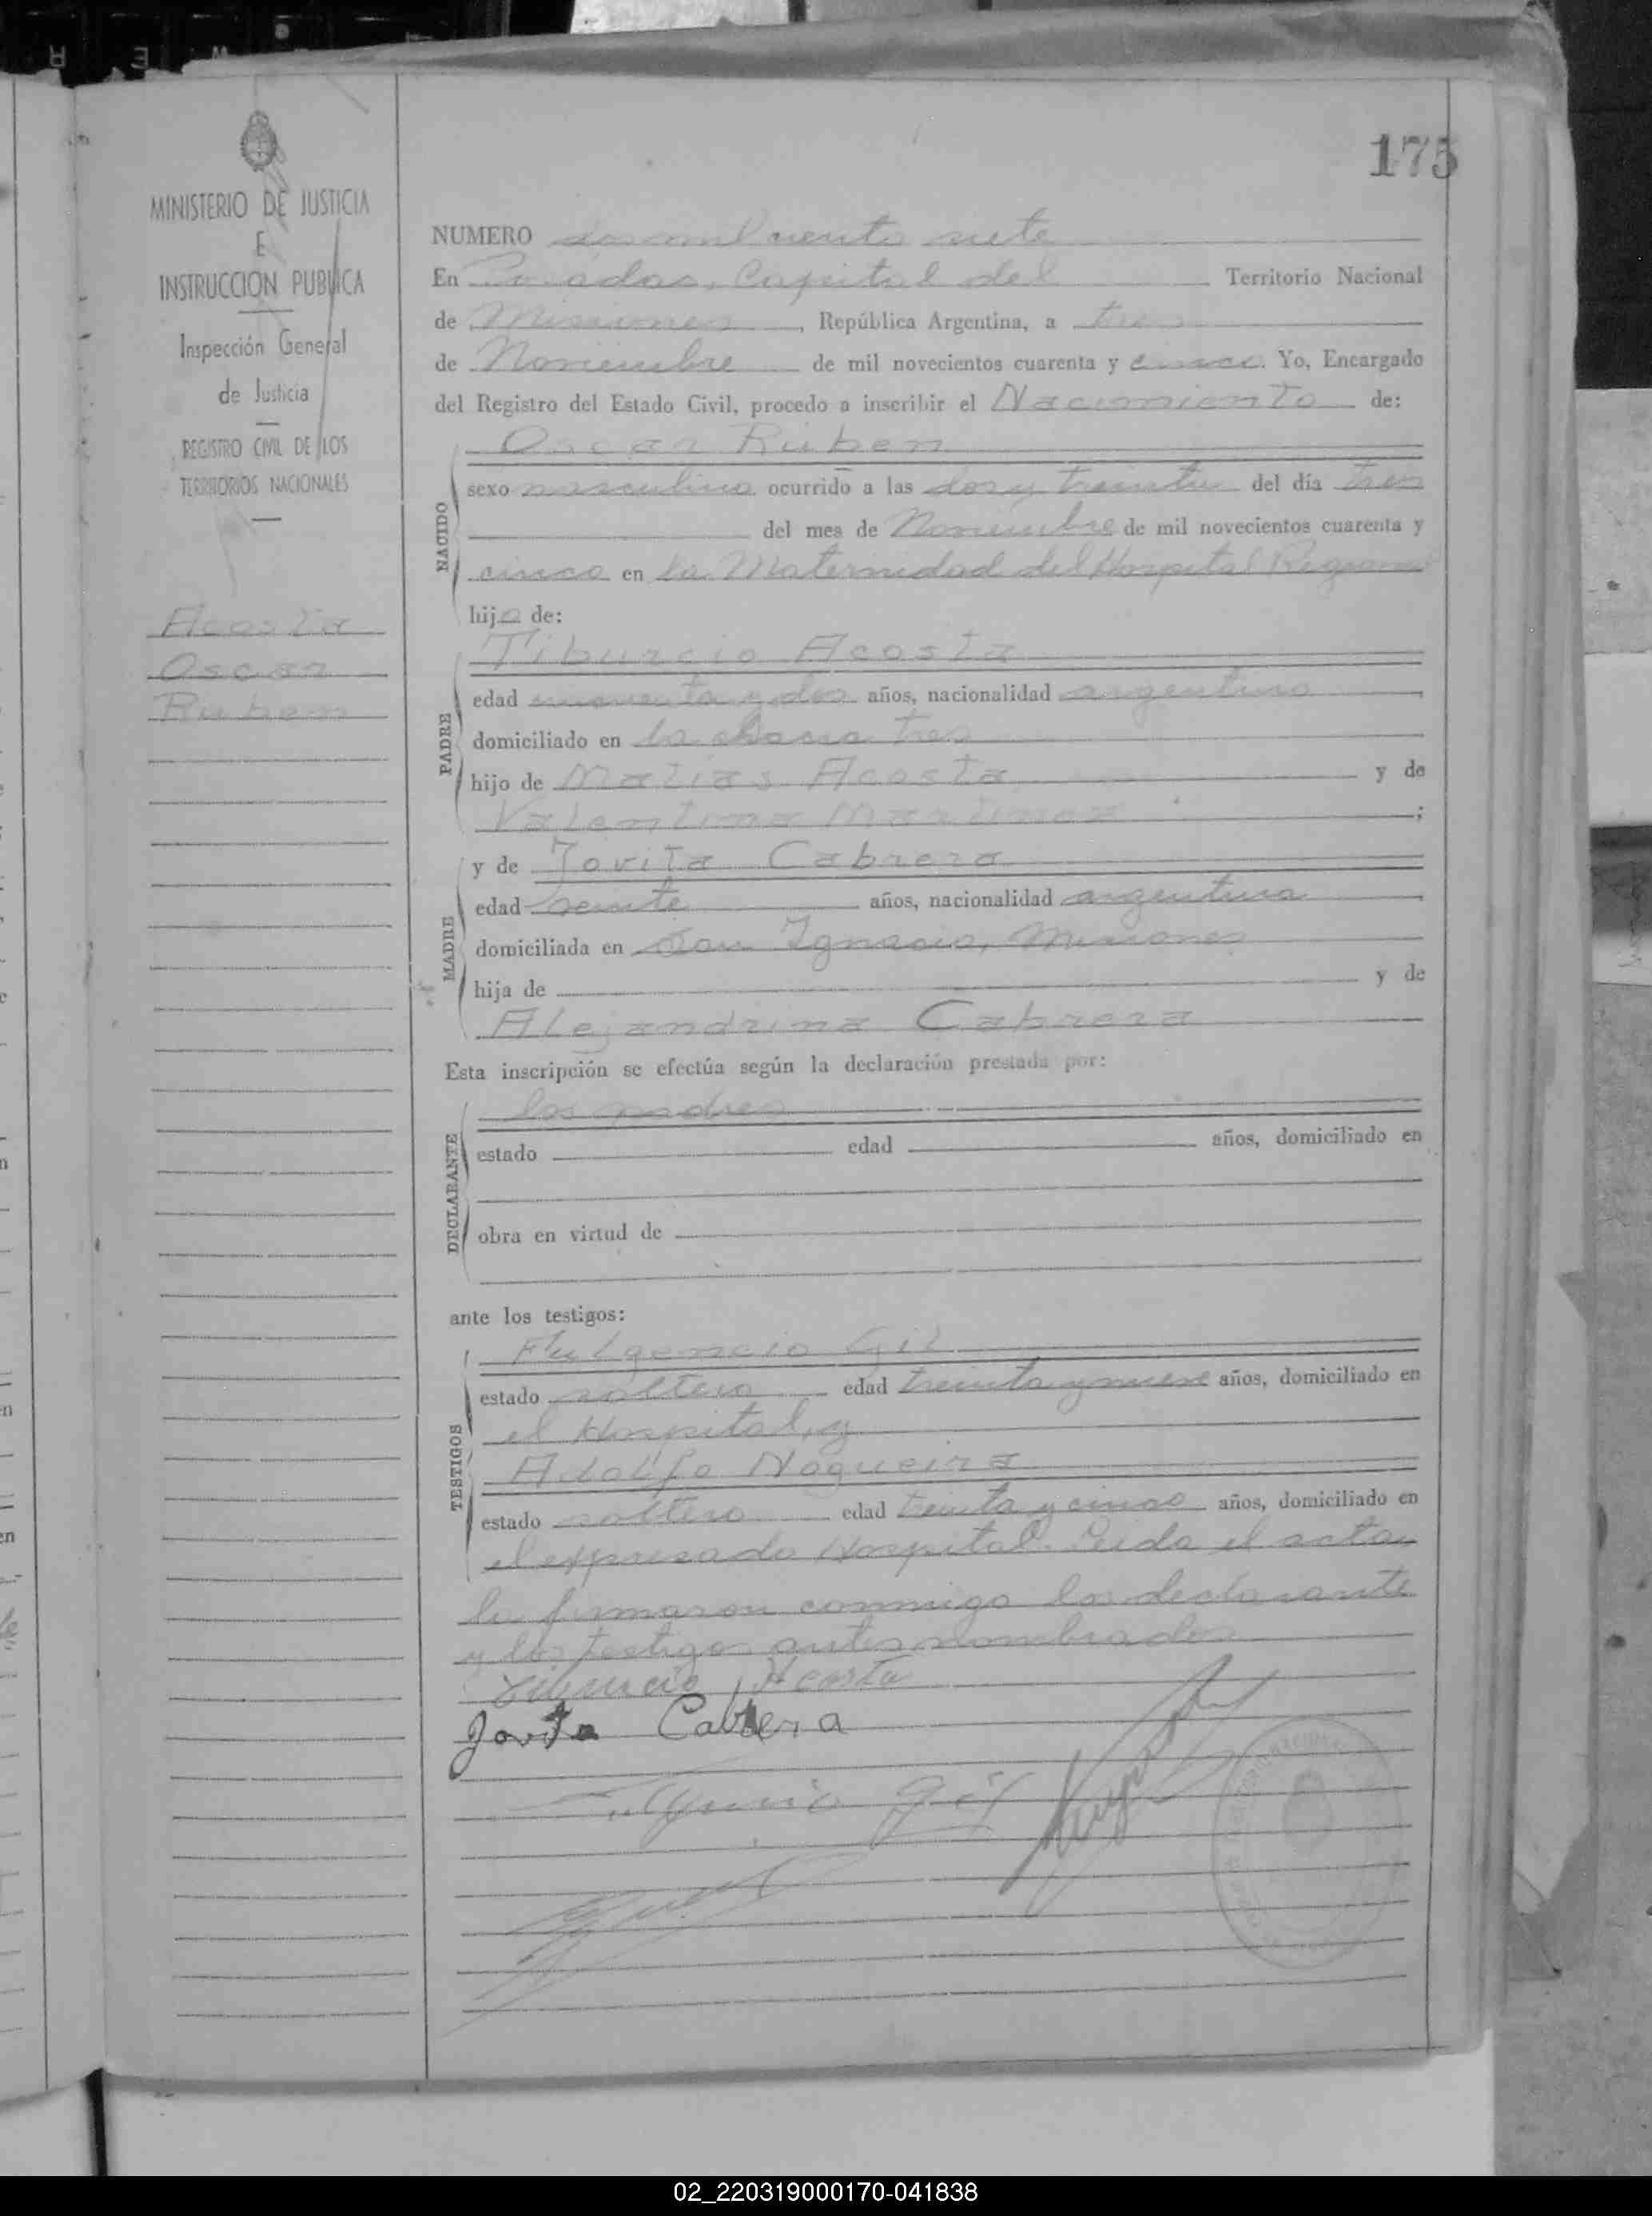 175
MINISTERIO DE JUSTICIA
E
INSTRUCCION PUBLICA
Inspección General
de Justicia
REGISTRO CIVIL DE LOS
TERRITORIOS NACIONALES
Acosta
Oscar
Ruben
NUMERO dos mil ciento siete
En Posadas, Capital del Territorio Nacional
de Misiones, República Argentina, a tres
de Noviembre de mil novecientos cuarenta y cinco. Yo, Encargado
del Registro del Estado Civil, procedo a inscribir el Nacimiento de:
Oscar Ruben
NACIDO
sexo masculino ocurrido a las dos y treinta del día tres
del mes de Noviembre de mil novecientos cuarenta y
cinco en la Maternidad del Hospital Regional
hijo de:
Tiburcio Acosta
PADRE
edad y dos años, nacionalidad argentino
domiciliado en la chacra tres
hijo de Matias Acosta y de
Valentina Martinez ;
y de Jovita Cabrera
MADRE
edad veinte años, nacionalidad argentina
domiciliada en San Ignacio, Misiones
hija de y de
Alejandrina Cabrera
Esta inscripción se efectúa según la declaración prestada por:
los padres
DECLARANTE
estado edad años, domiciliado en
obra en virtud de
ante los testigos:
Fulgencio Gil
TESTIGOS
estado soltero edad treinta y nueve años, domiciliado en
el Hospital, y
Adolfo Nogueira
estado soltero edad treinta y cinco años, domiciliado en
el expresado Hospital. Leida el acta
la firmaron conmigo los declarante
y los testigos antes nombrados
Tiburcio Acosta
Jovita Cabrera
Fulgencio Gil
02_220319000170-041838